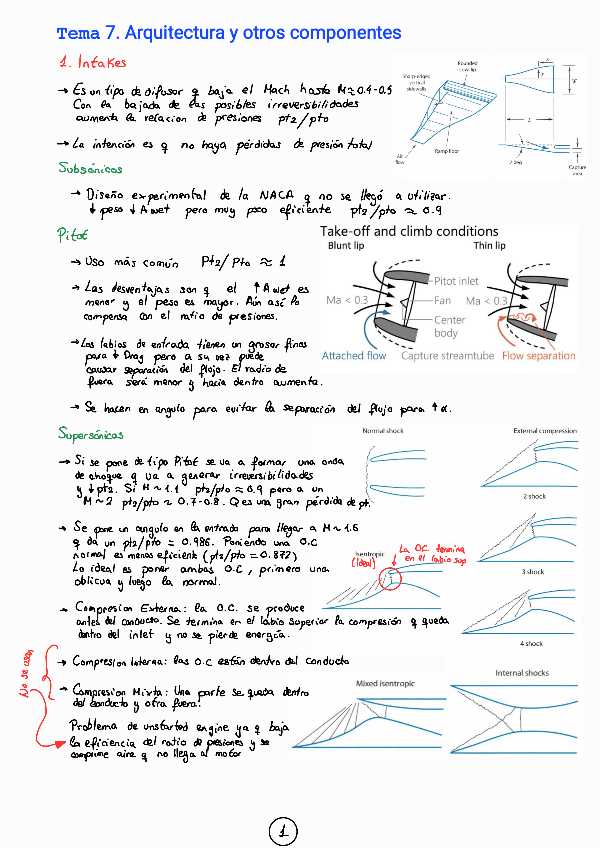 Tema 7. Arquitectura y otros componentes
1. Intakes
→ Es un tipo de difusor q baja el Mach hasta M≈0.4-0.5
Con la bajada de las posibles irreversibilidades
aumenta la relacion de presiones pt2/pt0
→ La intención es q no haya pérdidas de presión total
Rounded cowl lip
Sharp-edged vertical sidewalls
Ramp floor
Air flow
L
7 deg
Capture area
Subsónicos
→ Diseño experimental de la NACA q no se llegó a utilizar.
↓ peso ↓ Awet pero muy poco eficiente pt2/pt0 ≈ 0.9
Pitot
→ Uso más común Pt2/Pt0 ≈ 1
→ Las desventajas son q el ↑Awet es
menor y el peso es mayor. Aún así lo
compensa con el ratio de presiones.
→ Los labios de entrada tienen un grosor finos
para ↓ Drag pero a su vez puede
causar separación del flujo. El radio de
fuera será menor y hacia dentro aumenta.
→ Se hacen en angulo para evitar la separación del flujo para ↑α.
Take-off and climb conditions
Blunt lip
Thin lip
Ma < 0.3
Pitot inlet
Fan
Center body
Ma < 0.3
Attached flow
Capture streamtube
Flow separation
Supersónicos
→ Si se pone de tipo Pitot se va a formar una onda
de choque q va a generar irreversibilidades
y ↓pt2. Si M~1.1 pt2/pt0 ≈ 0.9 pero a un
M~2 pt2/pt0 ~ 0.7-0.8. Q es una gran pérdida de pt.
→ Se pone un angulo en la entrada para llegar a M~1.6
q da un pt2/pt0 = 0.986. Poniendo una O.C
normal es menos eficiente (pt2/pt0 = 0.872)
Lo ideal es poner ambas O.C, primero una
oblicua y luego la normal.
→ Compresion Externa: la O.C. se produce
antes del conducto. Se termina en el labio superior la compresión q queda
dentro del inlet y no se pierde energía.
→ Compresion Interna: las O.C están dentro del conducto
→ Compresion Mixta: Una parte se queda dentro
del conducto y otra fuera.
No se usan
Problema de unstarted engine ya q baja
la eficiencia del ratio de presiones y se
comprime aire q no llega al motor
Normal shock
External compression
2 shock
Isentropic
(Ideal)
La O.C. termina
en el labio sup
3 shock
4 shock
Mixed isentropic
Internal shocks
1